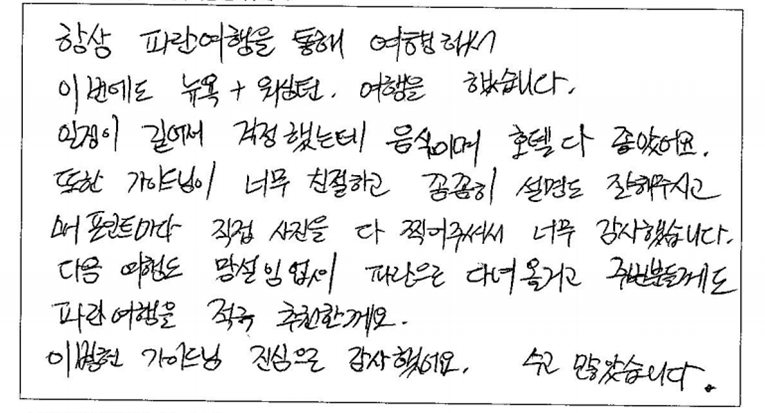 항상 파란여행을 통해 여행해서
이번에도 뉴욕 + 워싱턴. 여행을 했습니다.
일정이 길어서 걱정했는데 음식이며 호텔 다 좋았어요.
또한 가이드님이 너무 친절하고 꼼꼼히 설명도 잘해주시고
매 포인트마다 직접 사진을 다 찍어주셔서 너무 감사했습니다.
다음 여행도 망설임없이 파란으로 다녀올거고 주변분들께도
파란여행을 적극 추천할게요.
가이드님 진심으로 감사했어요. 수고 많았습니다.